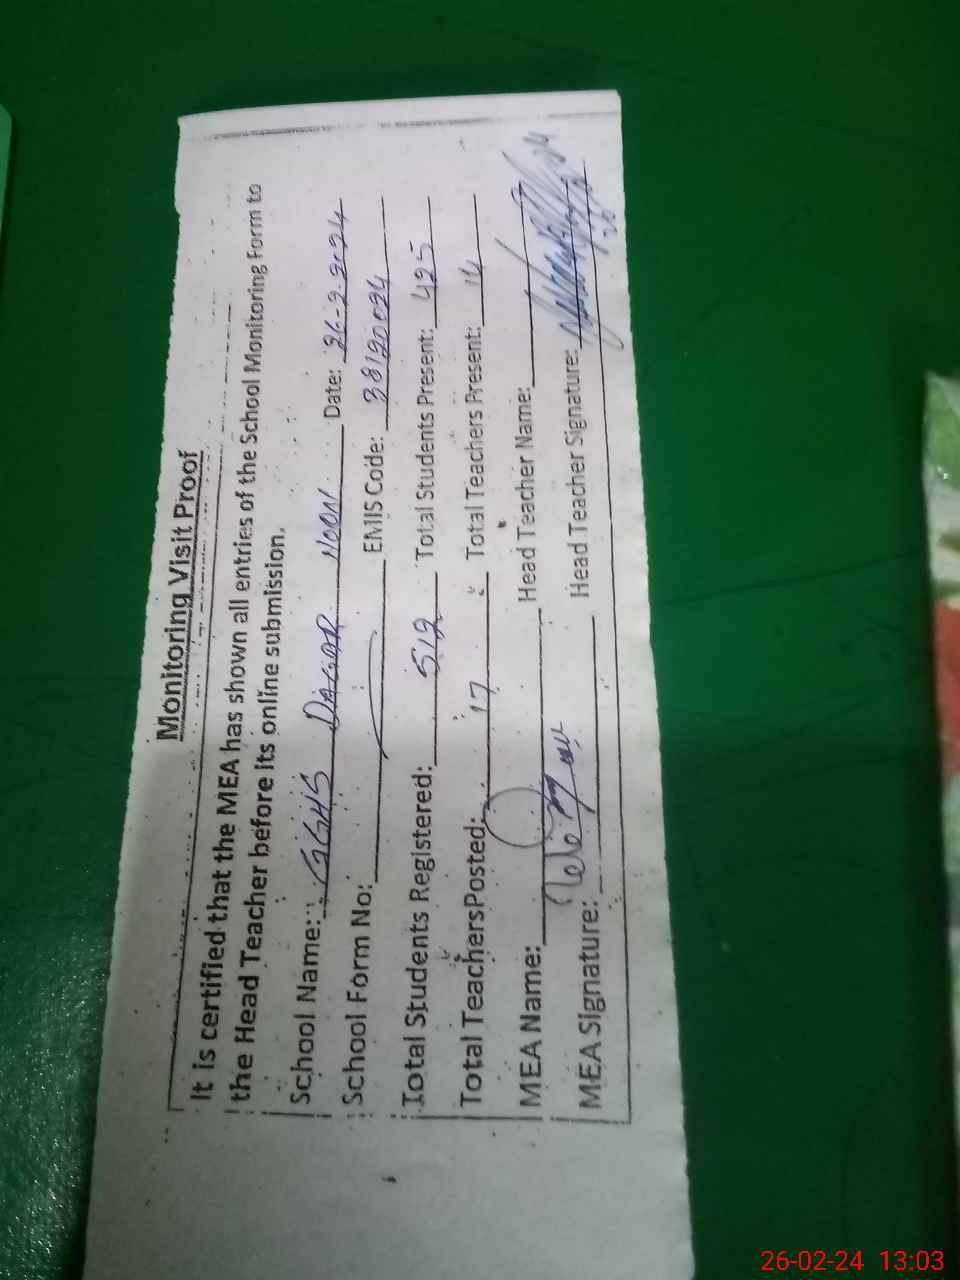 Monitoring Visit Proof
It is certified that the MEA has shown all entries of the School Monitoring Form to
the Head Teacher before its online submission.
School Name: GGHS DAGAR NOON Date: 26-2-2024
School Form No: EMIS Code: 38120024
Total Students Registered: 512 Total Students Present: 425
Total TeachersPosted: 17 Total Teachers Present: 14
MEA Name: Head Teacher Name:
MEA Signature: Head Teacher Signature:
26-02-24 13:03